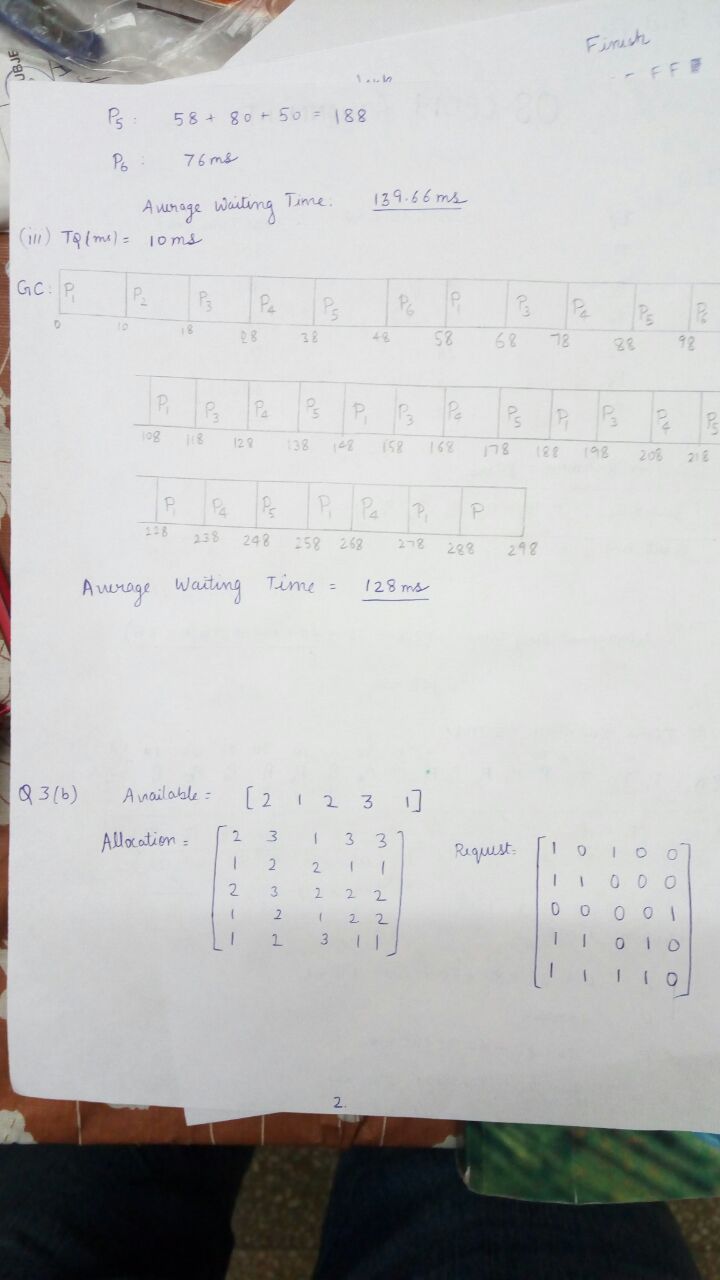 UBJE
Finish
- - F F
P5 : 58 + 80 + 50 = 188
P6 : 76 ms
Average Waiting Time: 139.66 ms
(iii) TQ (ms) = 10 ms
GC: P1 P2 P3 P4 P5 P6 P1 P3 P4 P5 P6
0 10 18 28 38 48 58 68 78 88 98
P1 P3 P4 P5 P1 P3 P4 P5 P1 P3 P4 P5
108 118 128 138 148 158 168 178 188 198 208 218
P1 P4 P5 P1 P4 P1 P
228 238 248 258 268 278 288 298
Average Waiting Time = 128 ms
Q 3(b) Available = [2 1 2 3 1]
Allocation = Request:
2 3 1 3 3 1 0 1 0 0
1 2 2 1 1 1 1 0 0 0
2 3 2 2 2 0 0 0 0 1
1 2 1 2 2 1 1 0 1 0
1 2 3 1 1 1 1 1 1 0
2.